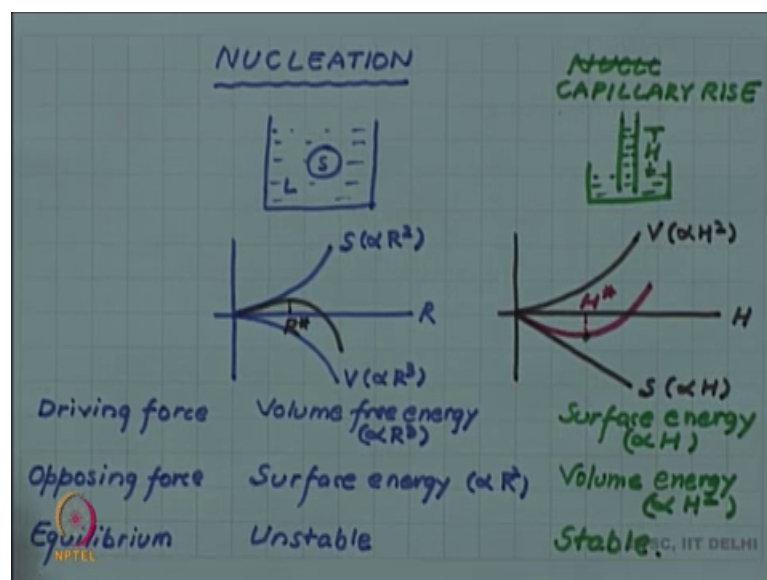 NUCLEATION
NUCLE
CAPILLARY RISE
S
L
H
S(αR²)
R
R*
V(αR³)
V(αH²)
H*
H
S(αH)
Driving force Volume free energy Surface energy
(αR³) (αH)
Opposing force Surface energy (αR²) Volume energy
(αH²)
Equilibrium Unstable Stable.
NPTEL
SC, IIT DELHI